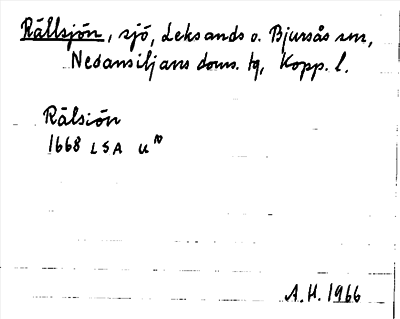 Rällsjön, sjö, Leksands o. Bjursås snr,
Nedansiljans doms. tg, Kopp. l.
Rälsiön
1668 LSA U10
A.H. 1966